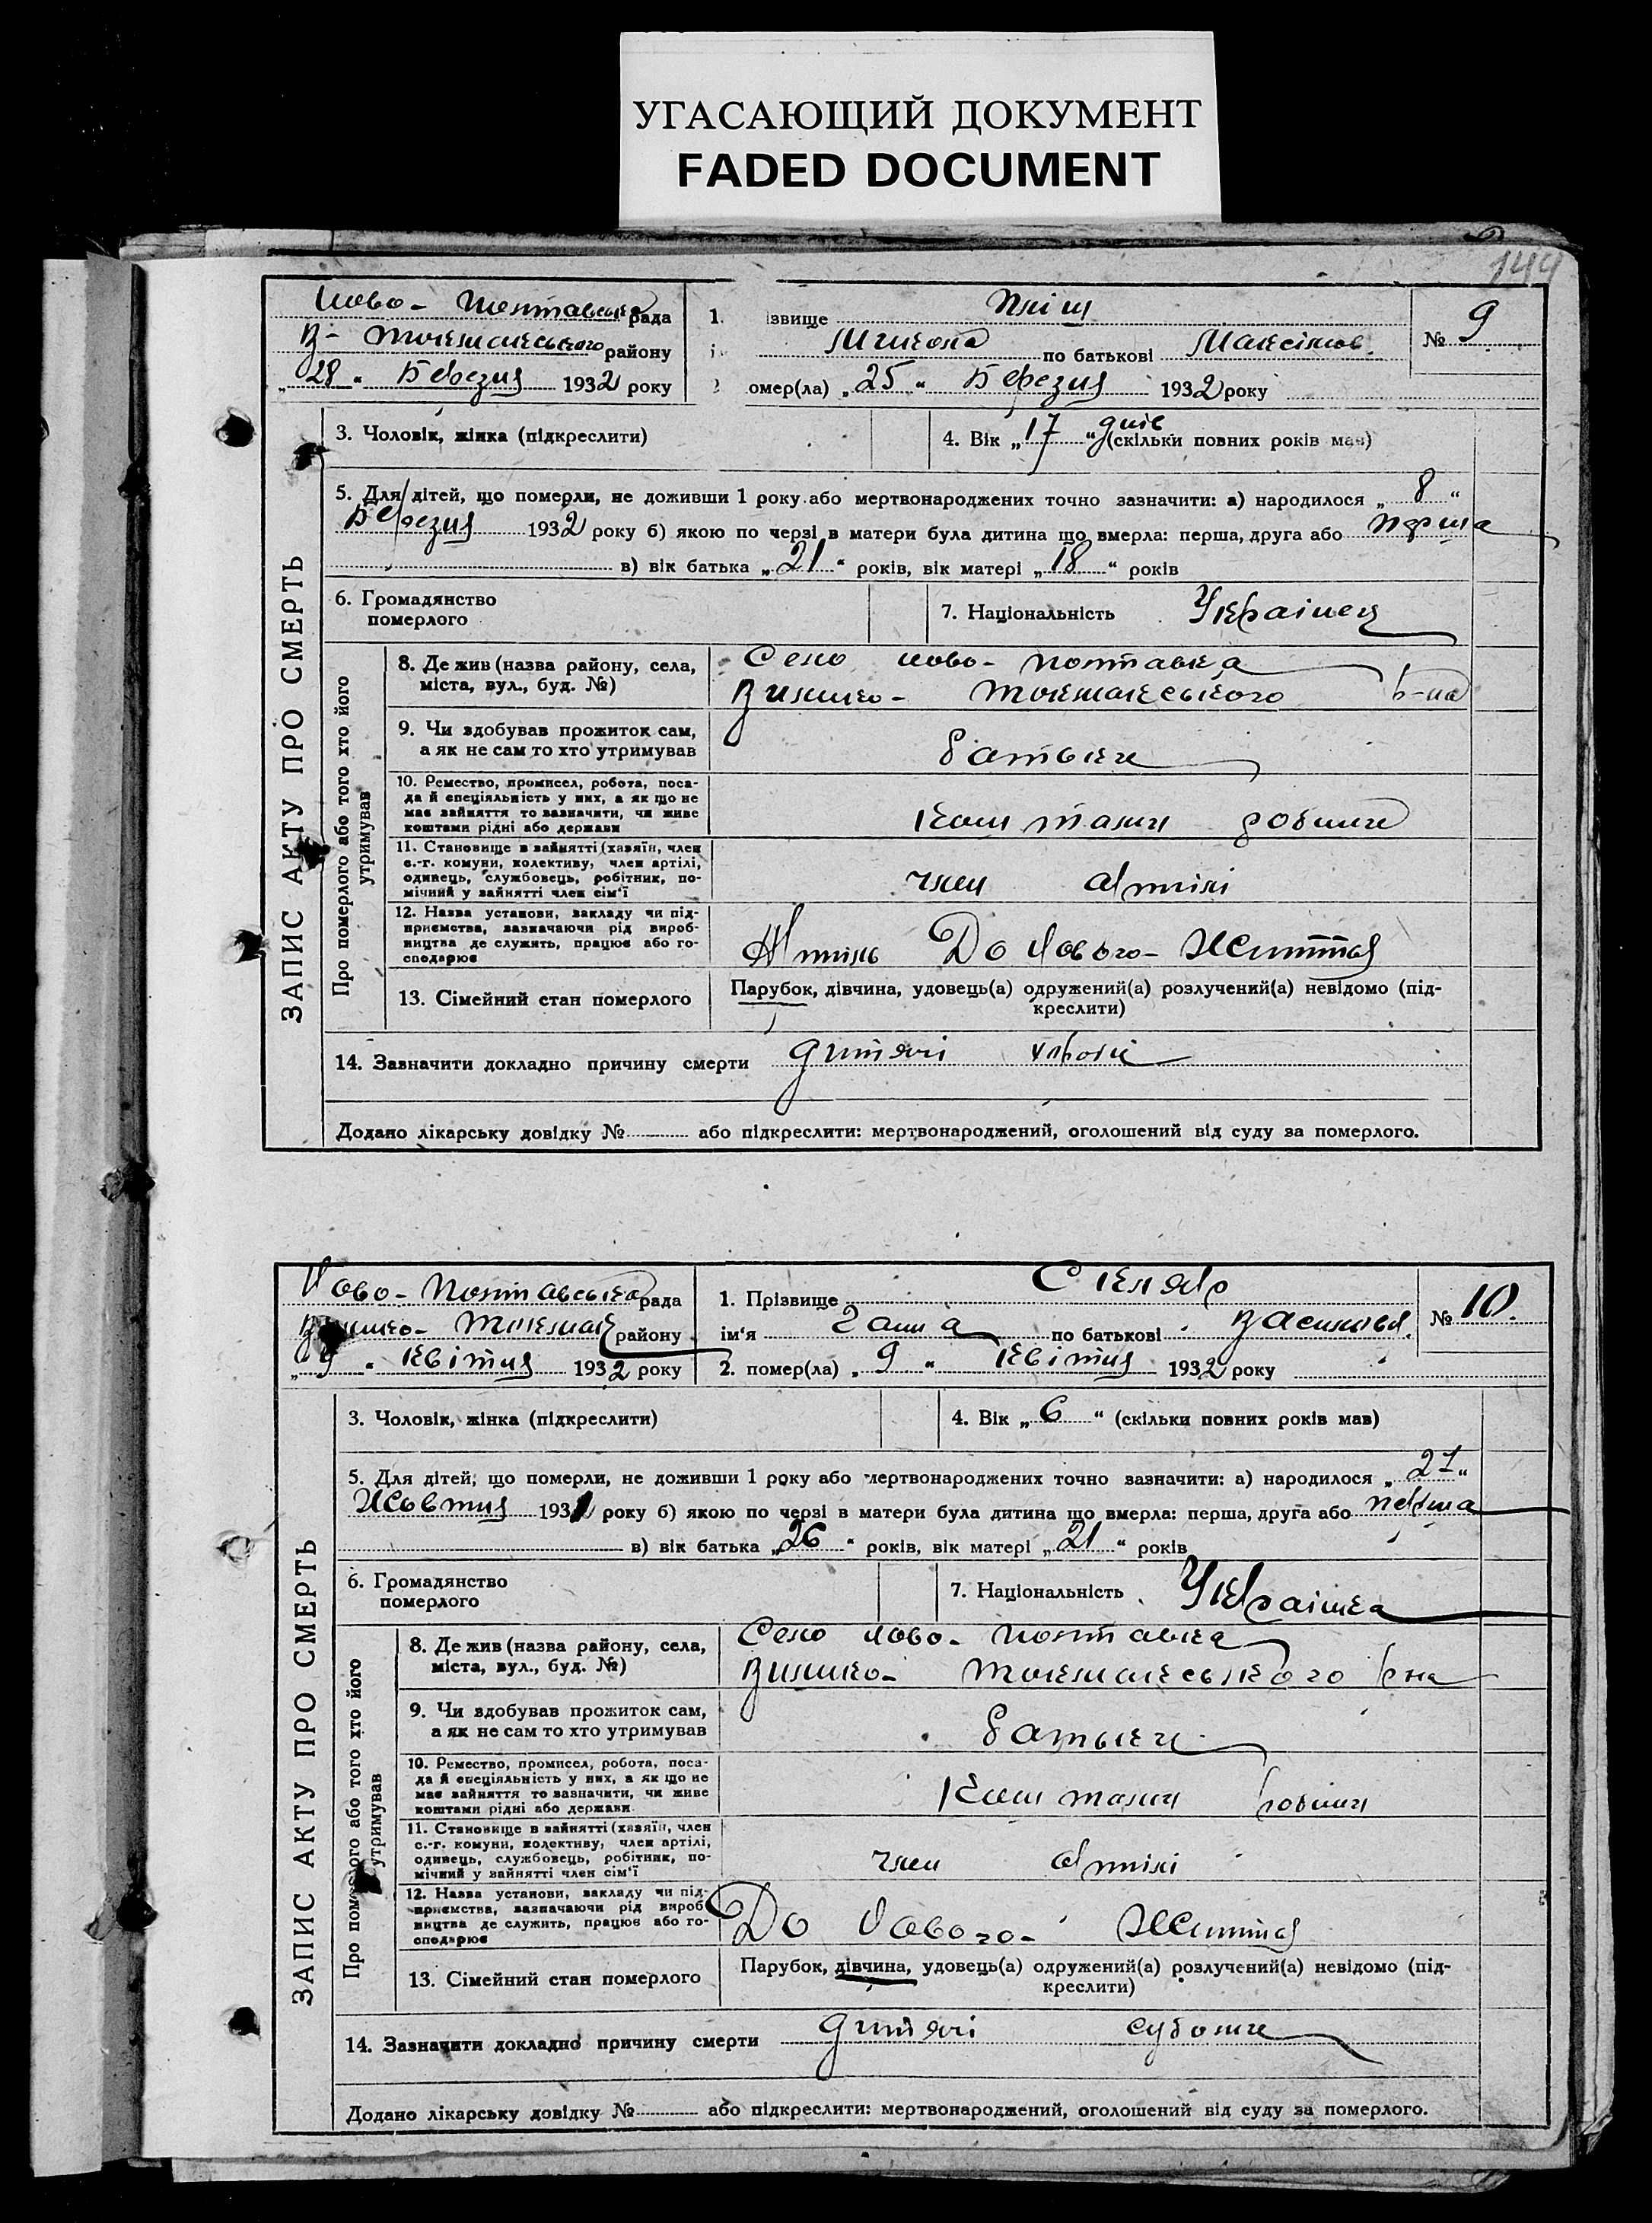 УГАСАЮЩИЙ ДОКУМЕНТ
FADED DOCUMENT
144
Ново- Полтавська рада
В- Токмакського району
„28“ Березня 1932 року
1. ізвище
Микола по батькові Максімов.
омер(ла) „25“ Березня 1932 року
№ 9
ЗАПИС АКТУ ПРО СМЕРТЬ
3. Чоловік, жінка (підкреслити)
4. Вік „17“ днів (скільки повних років мав)
5. Для дітей, що померли, не доживши 1 року або мертвонароджених точно зазначити: а) народилося „8“
Березня 1932 року б) якою по черзі в матери була дитина що вмерла: перша, друга або перша
в) вік батька „21“ років, вік матері „18“ років
6. Громадянство
померлого
7. Національність Українец
Про померлого або того хто його
утримував
8. Де жив (назва району, села,
міста, вул., буд. №)
Село Ново- Полтавка
Велико- Токмакського р-на
9. Чи здобував прожиток сам,
а як не сам то хто утримував
батьки
10. Ремество, промисел, робота, поса-
да й спеціяльність у них, а як що не
має зайняття то зазначити, чи живе
коштами рідні або держави
коштами
11. Становище в зайнятті (хазяїн, член
с.-г. комуни, колективу, член артілі,
одинець, службовець, робітник, по-
мічний у зайнятті член сім'ї
член Артілі
12. Назва установи, закладу чи під-
приємства, зазначаючи рід вироб-
ництва де служить, працює або го-
сподарює
Артіль До Нового- Життя
13. Сімейний стан померлого
Парубок, дівчина, удовець(а) одружений(а) розлучений(а) невідомо (під-
креслити)
14. Зазначити докладно причину смерти дитячі
Додано лікарську довідку № або підкреслити: мертвонароджений, оголошений від суду за померлого.
Ново- Полтавська рада
Велико- Токмак району
„9“ Квітня 1932 року
1. Прізвище Скляр
ім'я Ганна по батькові Васильов.
2. помер(ла) „9“ Квітня 1932 року
№ 10.
ЗАПИС АКТУ ПРО СМЕРТЬ
3. Чоловік, жінка (підкреслити)
4. Вік „6“ (скільки повних років мав)
5. Для дітей, що померли, не доживши 1 року або мертвонароджених точно зазначити: а) народилося „27“
Жовтня 1931 року б) якою по черзі в матери була дитина що вмерла: перша, друга або перша
в) вік батька „26“ років, вік матері „21“ років
6. Громадянство
померлого
7. Національність Українка
Про померлого або того хто його
утримував
8. Де жив (назва району, села,
міста, вул., буд. №)
Село Ново- Полтавка
Велико- Токмакського рна
9. Чи здобував прожиток сам,
а як не сам то хто утримував
батьки
10. Ремество, промисел, робота, поса-
да й спеціяльність у них, а як що не
має зайняття то зазначити, чи живе
коштами рідні або держави
коштами
11. Становище в зайнятті (хазяїн, член
с.-г. комуни, колективу, член артілі,
одинець, службовець, робітник, по-
мічний у зайнятті член сім'ї
член Артілі
12. Назва установи, закладу чи під-
приємства, зазначаючи рід вироб-
ництва де служить, працює або го-
сподарює
До Нового- Життя
13. Сімейний стан померлого
Парубок, дівчина, удовець(а) одружений(а) розлучений(а) невідомо (під-
креслити)
14. Зазначити докладно причину смерти дитячі
Додано лікарську довідку № або підкреслити: мертвонароджений, оголошений від суду за померлого.